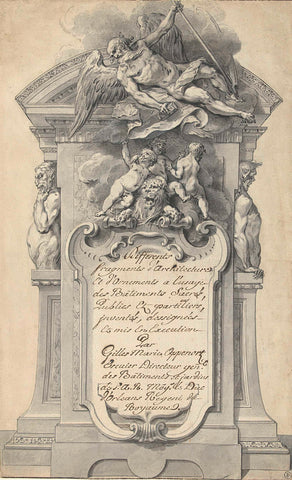 Differents
fragments d'Architecture
Et d'Ornements a l'usage
des Bâtiments Sacrés,
Publics Et particuliers,
jnventés, dessignées
Et mis En Execution
Par
Gilles Maria Oppenort
Ecuier Directeur gen.
des Bâtiments & jardins
de s. a. R. Mgr. L. Duc
d'Orleans Regent du
Royaume